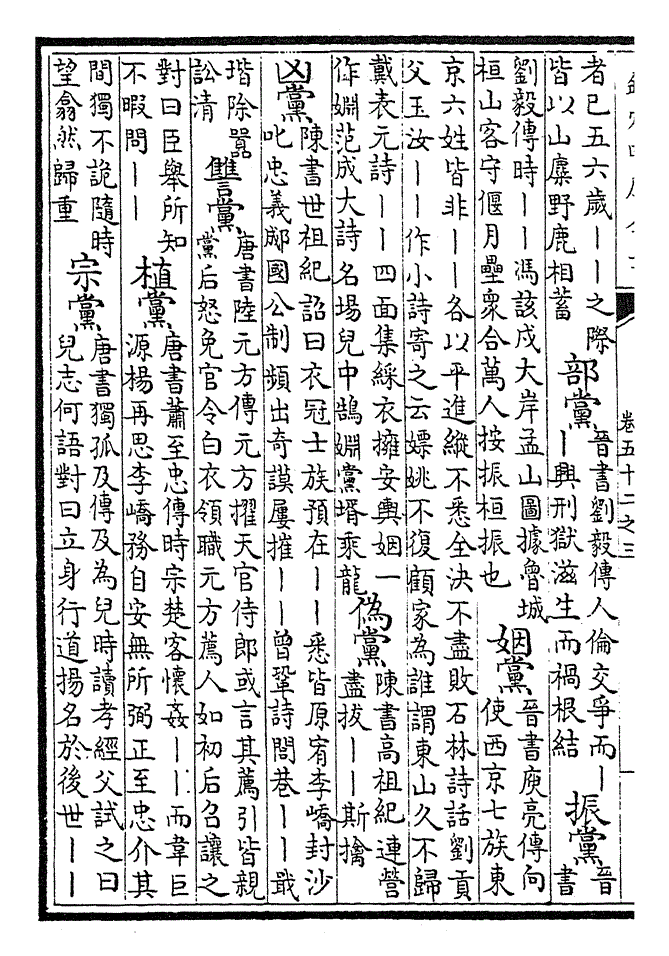 卷五十二之三
者已五六歲——之際
皆以山麋野鹿相蓄
部黨
晉書劉毅傳人倫交爭而—
—興刑獄滋生而禍根結
振黨
晉
書
劉毅傳時——馮該戍大岸孟山圖據魯城
桓山客守偃月壘衆合萬人按振桓振也
姻黨
晉書庾亮傳向
使西京七族東
京六姓皆非——各以平進縱不悉全決不盡敗石林詩話劉貢
父玉汝——作小詩寄之云嫖姚不復顧家為誰謂東山久不歸
戴表元詩——四面集綵衣擁安輿姻一
作婣范成大詩名場兒中鵠婣黨壻乘龍
偽黨
陳書高祖紀連營
盡拔——斯擒
凶黨
陳書世祖紀詔曰衣冠士族預在——悉皆原宥李嶠封沙
叱忠義郕國公制頻出奇謨屢摧——曾鞏詩閭巷——戢
堦除囂
訟清
讐黨
唐書陸元方傳元方擢天官侍郎或言其薦引皆親
黨后怒免官令白衣領職元方薦人如初后召讓之
對曰臣舉所知
不暇問——
植黨
唐書蕭至忠傳時宗楚客懷姦——而韋巨
源楊再思李嶠務自安無所弼正至忠介其
間獨不詭隨時
望翕然歸重
宗黨
唐書獨孤及傳及為兒時讀孝經父試之曰
兒志何語對曰立身行道揚名於後世——